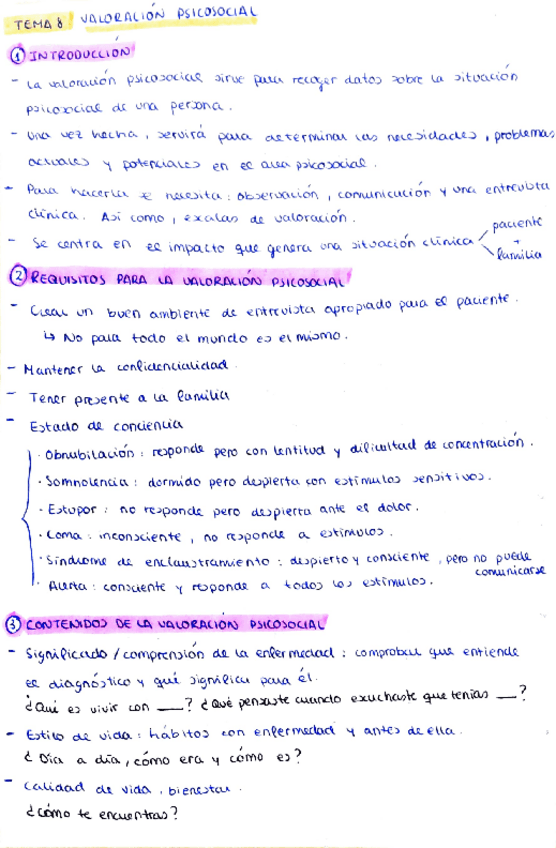 TEMA 8 VALORACIÓN PSICOSOCIAL
① INTRODUCCIÓN
- La valoración psicosocial sirve para recoger datos sobre la situación
psicosocial de una persona.
- Una vez hecha, servirá para determinar las necesidades, problemas
actuales y potenciales en el area psicosocial.
- Para hacerla se necesita: observación, comunicación y una entrevista
clínica. Así como, escalas de valoración.
- Se centra en el impacto que genera una situación clínica paciente + familia
② REQUISITOS PARA LA VALORACIÓN PSICOSOCIAL
- Crear un buen ambiente de entrevista apropiado para el paciente.
↳ No para todo el mundo es el mismo.
- Mantener la confidencialidad.
- Tener presente a la familia
- Estado de conciencia
· Obnubilación: responde pero con lentitud y dificultad de concentración.
· Somnolencia: dormido pero despierta con estímulos sensitivos.
· Estupor: no responde pero despierta ante el dolor.
· Coma: inconsciente, no responde a estímulos.
· Síndrome de enclaustramiento: despierto y consciente, pero no puede
comunicarse
· Alerta: consciente y responde a todos los estímulos.
③ CONTENIDOS DE LA VALORACIÓN PSICOSOCIAL
- Significado / comprensión de la enfermedad: comprobar que entiende
el diagnóstico y qué significa para él.
¿Qué es vivir con ___? ¿Qué pensaste cuando escuchaste que tenías ___?
- Estilo de vida: hábitos con enfermedad y antes de ella.
¿Día a día, cómo era y cómo es?
- Calidad de vida, bienestar.
¿cómo te encuentras?